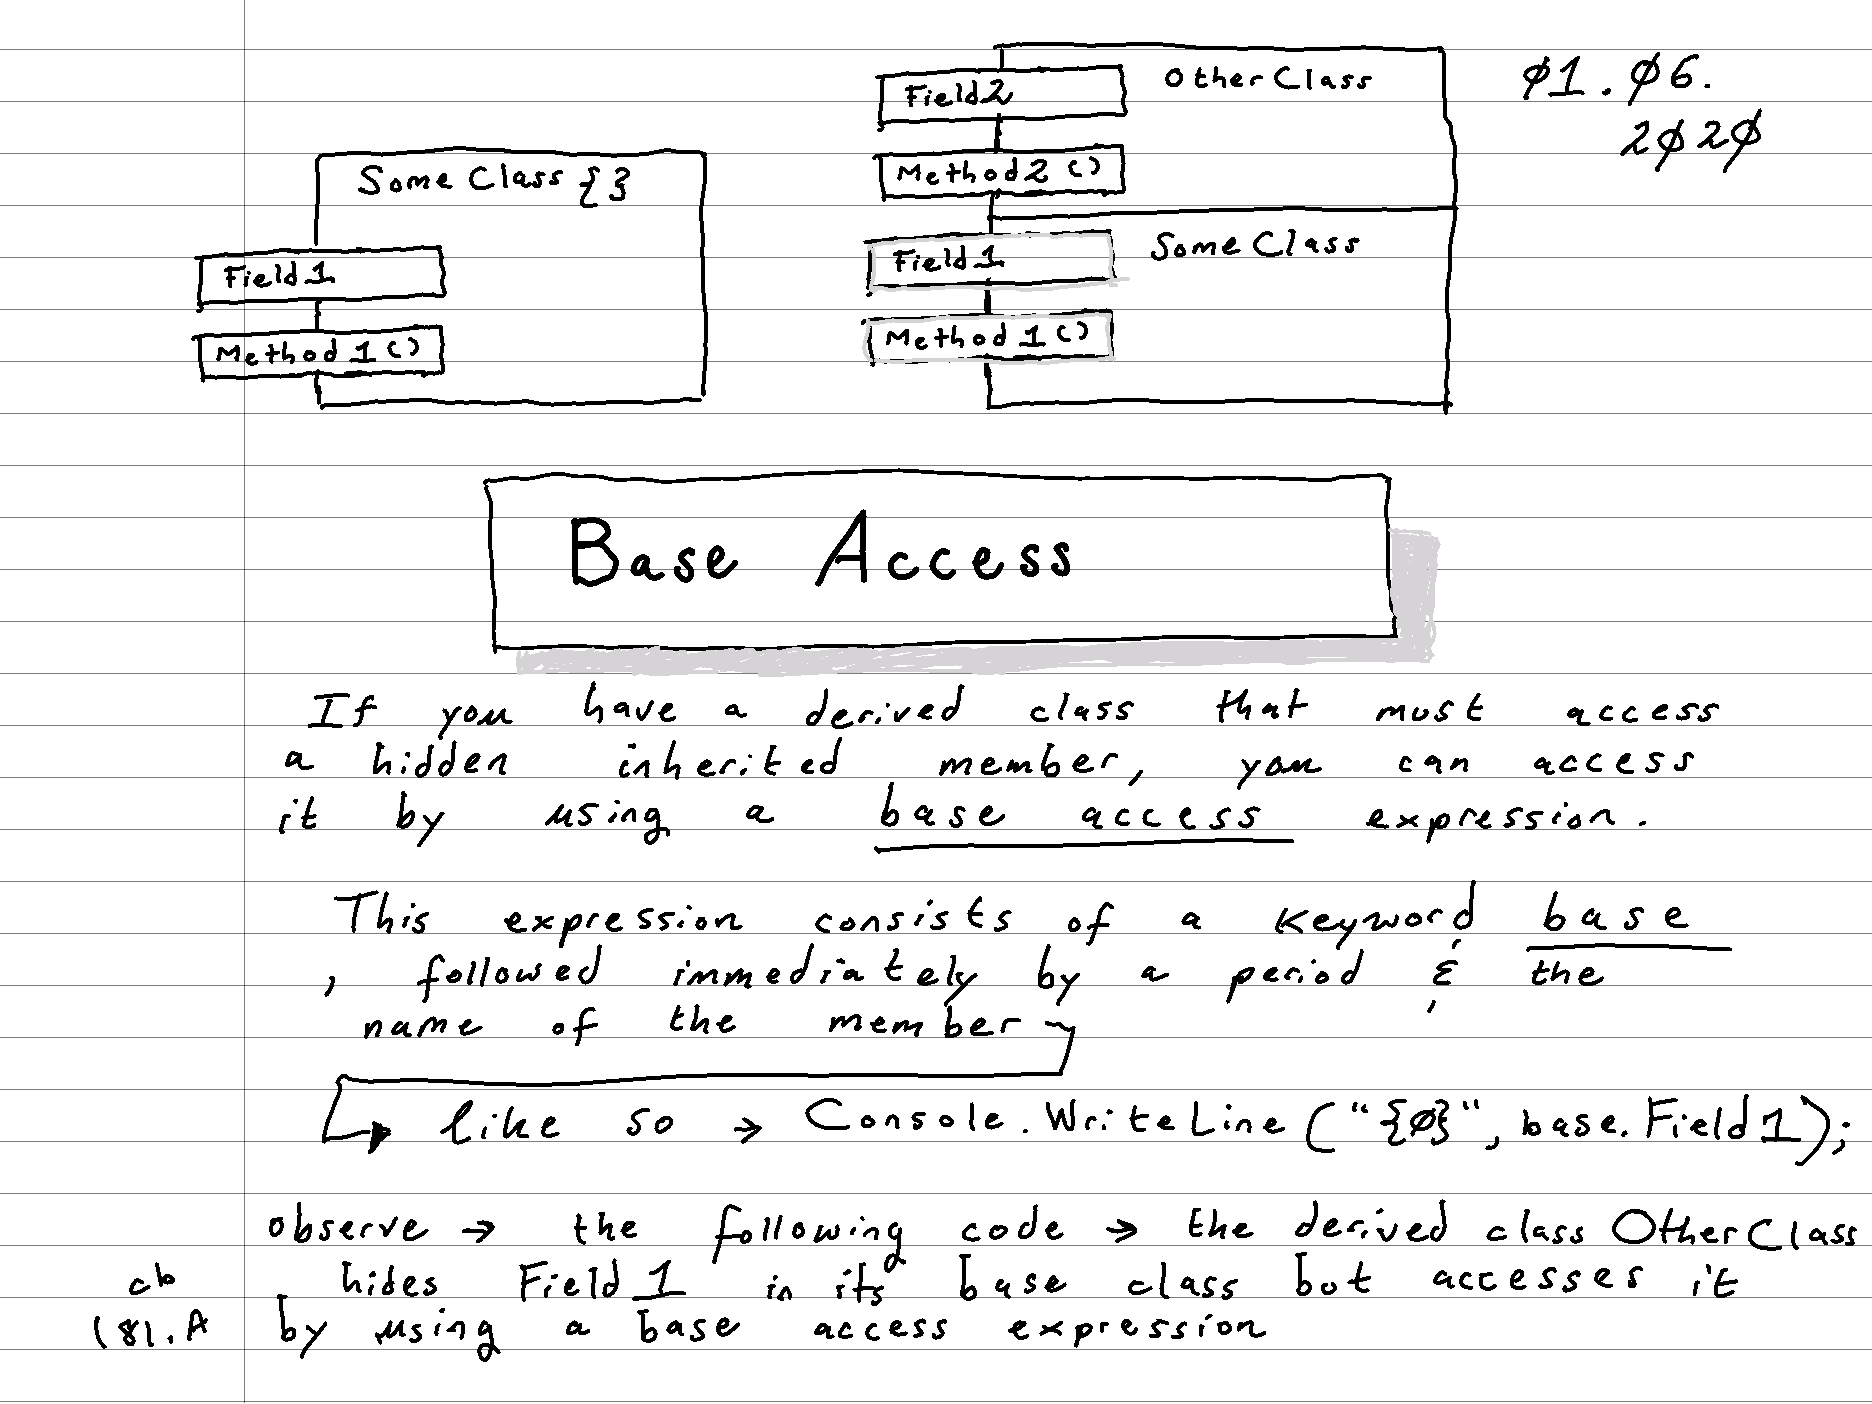 Some Class { }
Field 1
Method 1 ( )
Other Class
Field 2
Method 2 ( )
Some Class
Field 1
Method 1 ( )
01.06.
2020
Base Access
If you have a derived class that must access
a hidden inherited member, you can access
it by using a base access expression.
This expression consists of a keyword base
, followed immediately by a period & the
name of the member
like so → Console.WriteLine("{0}", base.Field1);
observe → the following code → the derived class OtherClass
hides Field 1 in its base class but accesses it
by using a base access expression